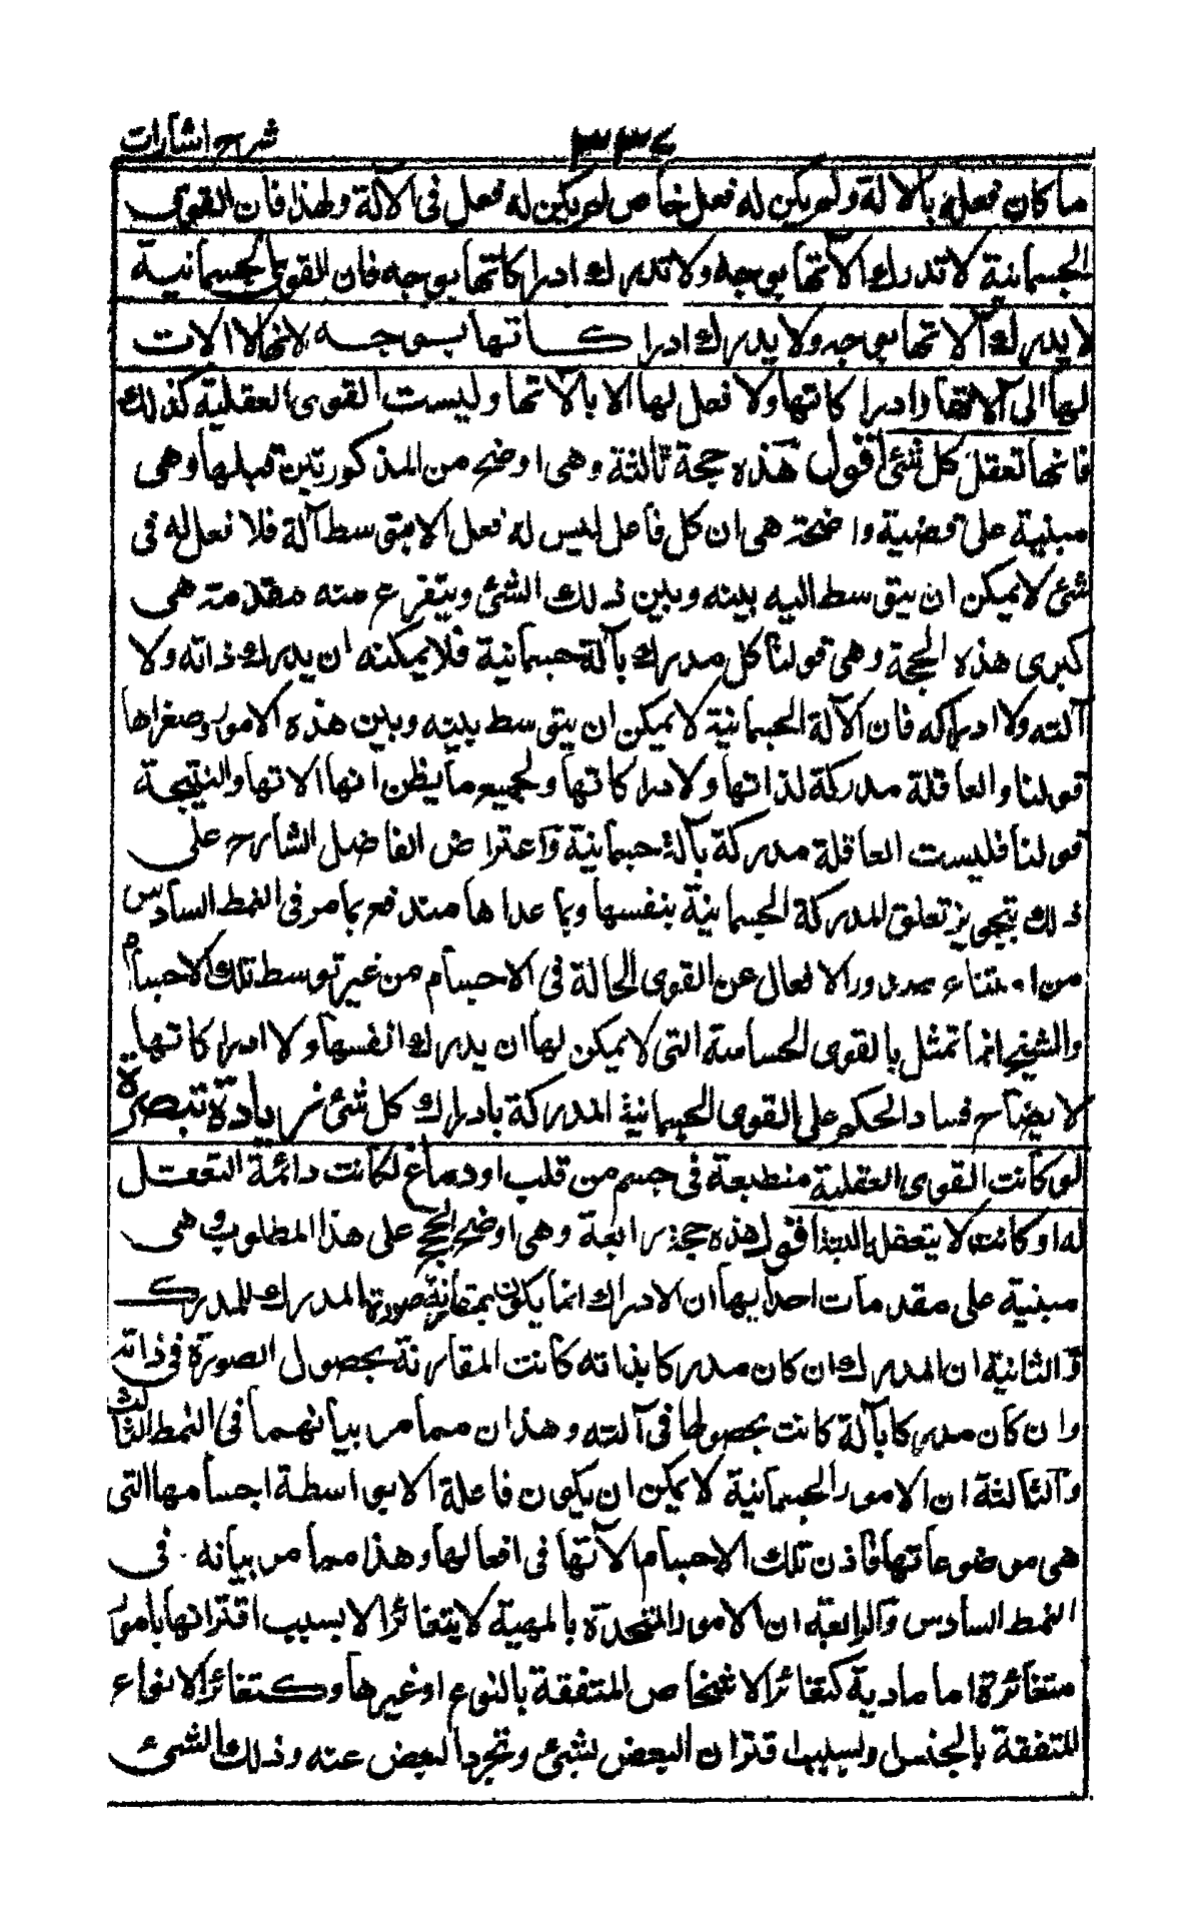 شرح اشارات
٣٣٤
ما كان فعله بالآلة ولم يكن له فعل خاص لم يكن له فعل فى الآلة ولهذا فان القوى
الجسمانية لا تدرك الآتها بوجه ولا تدرك ادراكاتها بوجه فان القوى الجسمانية
لا يدرك آلاتها بوجه ولا يدرك ادراكاتها بوجه لانها لا الات
لها الى آلاتها وادراكاتها ولا فعل لها الا بآلاتها وليست القوى العقلية كذلك
فانها تعقل كل شئ اقول هذه حجة ثالثة وهى اوضح من المذكورتين قبلها وهى
مبنية على قضية واضحة هى ان كل فاعل ليس له فعل الا بتوسط آلة فلا فعل له فى
شئ لا يمكن ان يتوسط اليه بينه وبين ذلك الشئ ويتفرع منه مقدمة هى
كبرى هذه الحجة وهى قولنا كل مدرك بآلة جسمانية فلا يمكنه ان يدرك ذاته ولا
آلته ولا ادراكه فان الآلة الجسمانية لا يمكن ان يتوسط بينه وبين هذه الامور وصغراها
قولنا والعاقلة مدركة لذاتها ولادراكاتها ولجميع ما يظن انها الاتها والنتيجة
قولنا فليست العاقلة مدركة بآلة جسمانية واعتراض الفاضل الشارح على
ذلك بتجويز تعلق المدركة الجسمانية بنفسها وبما عداها مندفع بما مر فى النمط السادس
من امتناع صدور الافعال عن القوى الحالة فى الاجسام من غير توسط تلك الاجسام
والشيخ انما تمثل بالقوى الحساسة التى لا يمكن لها ان يدرك انفسها ولا ادراكاتها
لايضاح فساد الحكم على القوى الجسمانية المدركة بادراك كل شئ زيادة تبصرة
لو كانت القوى العقلية منطبعة فى جسم من قلب او دماغ لكانت دائمة التعقل
له او كانت لا يتعقل البتة اقول هذه حجة رابعة وهى اوضح الحجج على هذا المطلوب وهى
مبنية على مقدمات احدايها ان الادراك انما يكون بمقارنة صورة المدرك للمدرك
والثانية ان المدرك ان كان مدركا بذاته كانت المقارنة بحصول الصورة فى ذاته
وان كان مدركا بآلة كانت بحصولها فى آلته وهذان مما مر بيانهما فى النمط الثالث
والثالثة ان الامور الجسمانية لا يمكن ان يكون فاعلة الا بواسطة اجسامها التى
هى موضوعاتها فاذن تلك الاجسام آلاتها فى افعالها وهذا مما مر بيانه فى
النمط السادس والرابعة ان الامور المتحدة بالمهية لا يتغائر الا بسبب اقترانها بامور
متغائرة اما مادية كتغائر الاشخاص المتفقة بالنوع او غيرها وكتغائر الانواع
المتفقة بالجنس او بسبب اقتران البعض بشئ وتجرد البعض عنه وذلك الشئ